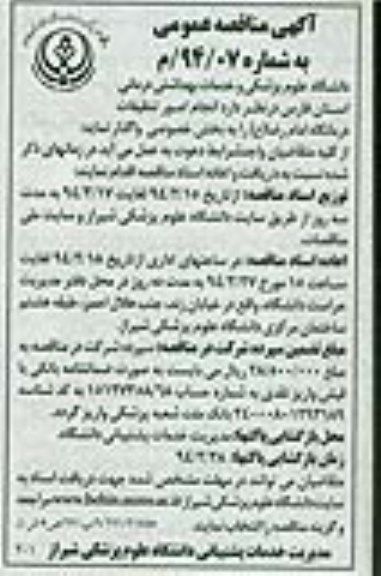 آگهی مناقصه عمومی
به شماره ۹۴/۰۷/م
دانشگاه علوم پزشکی و خدمات بهداشتی درمانی
استان فارس در نظر دارد انجام امور تنظیفات
درمانگاه امام رضا(ع) را به بخش خصوصی واگذار نماید:
از کلیه متقاضیان واجد شرایط دعوت به عمل می آید در زمانهای ذکر
شده نسبت به دریافت و اعاده اسناد مناقصه اقدام نمایند:
توزیع اسناد مناقصه: از تاریخ ۹۴/۳/۱۵ لغایت ۹۴/۳/۱۷ به مدت
سه روز از طریق سایت دانشگاه علوم پزشکی شیراز و سایت ملی
مناقصات.
اعاده اسناد مناقصه: در ساعتهای اداری از تاریخ لغایت
ساعت ۱۵ مورخ ۹۴/۳/۲۷ به مدت ده روز در محل دفتر مدیریت
حراست دانشگاه واقع در خیابان زند، جنب هلال احمر، طبقه هشتم
ساختمان مرکزی دانشگاه علوم پزشکی شیراز.
مبلغ تضمین سپرده شرکت در مناقصه: سپرده شرکت در مناقصه به
مبلغ ریال می بایست به صورت ضمانتنامه بانکی یا
فیش واریز نقدی به شماره حساب به کد شناسه
بانک ملت شعبه پزشکی واریز گردد.
محل بازگشایی پاکتها: مدیریت خدمات پشتیبانی دانشگاه.
زمان بازگشایی پاکتها: ۹۴/۳/۲۸
متقاضیان می توانند در مهلت مشخص شده جهت دریافت اسناد به
سایت دانشگاه علوم پزشکی شیراز مراجعه
و گزینه مناقصه را انتخاب نمایند.
مدیریت خدمات پشتیبانی دانشگاه علوم پزشکی شیراز